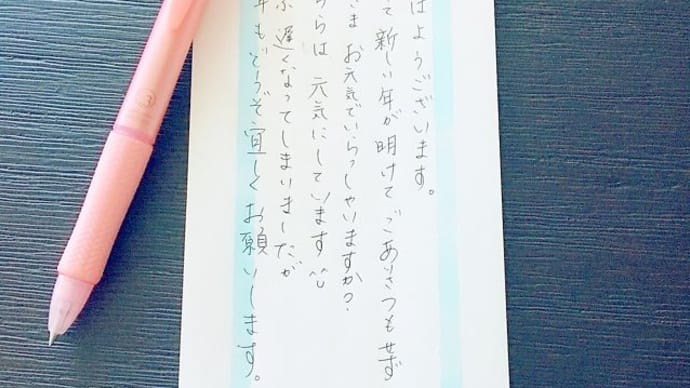 はようございます。
て 新しい年が 明けて ごあいさつも せず
さま お元気でいらっしゃいますか?
らは 元気にしています
遅くなってしまいましたが
年もどうぞ宜しくお願いします。